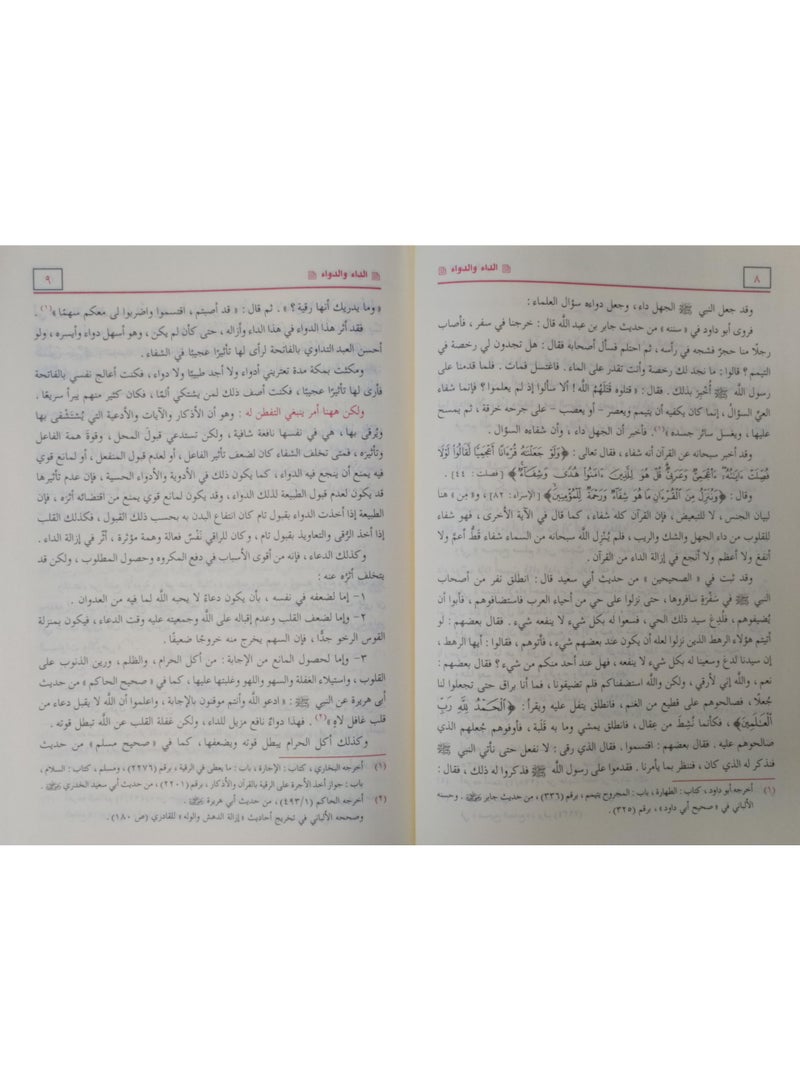 ٨
الداء والدواء
وقد جعل النبي ﷺ الجهل داء، وجعل دواءه سؤال العلماء :
فروى أبو داود في « سننه » من حديث جابر بن عبد الله قال : خرجنا في سفر ، فأصاب
رجلًا منا حجرٌ فشجه في رأسه ، ثم احتلم فسأل أصحابه فقال : هل تجدون لي رخصة في
التيمم ؟ قالوا : ما نجد لك رخصة وأنت تقدر على الماء. فاغتسل فمات . فلما قدمنا على
رسول الله ﷺ أُخبِرَ بذلك . فقال : « قتلوه قَتَلَهُمُ الله ! ألا سألوا إذ لم يعلموا؟ فإنما شفاء
العيِّ السؤالُ، إنما كان يكفيه أن يتيمم ويعصر – أو يعصب – على جرحه خرقة ، ثم يمسح
عليها ، ويغسل سائر جسده »(١). فأخبر أن الجهل داء ، وأن شفاءه السؤال .
وقد أخبر سبحانه عن القرآن أنه شفاء ، فقال تعالى : ﴿وَلَوْ جَعَلْنَٰهُ قُرْءَانًا أَعْجَمِيًّا لَّقَالُوا۟ لَوْلَا
فُصِّلَتْ ءَايَٰتُهُۥٓ ءَا۬عْجَمِىٌّ وَعَرَبِىٌّ قُلْ هُوَ لِلَّذِينَ ءَامَنُوا۟ هُدًى وَشِفَآءٌ﴾ [ فصلت : ٤٤] .
وقال : ﴿وَنُنَزِّلُ مِنَ ٱلْقُرْءَانِ مَا هُوَ شِفَآءٌ وَرَحْمَةٌ لِّلْمُؤْمِنِينَ﴾ [الإسراء : ٨٢] ، و« من » هنا
لبيان الجنس ، لا للتبعيض، فإن القرآن كله شفاء ، كما قال في الآية الأخرى ، فهو شفاء
للقلوب من داء الجهل والشك والريب ، فلم يُنْزِل الله سبحانه من السماء شفاء قَطُّ أعمَّ ولا
أنفعَ ولا أعظم ولا أنجع في إزالة الداء من القرآن .
وقد ثبت في « الصحيحين » من حديث أبي سعيد قال : انطلق نفر من أصحاب
النبي ﷺ في سَفْرَةٍ سافروها ، حتى نزلوا على حي من أحياء العرب فاستضافوهم ، فأبوا أن
يُضيفوهم ، فلُدِغ سيد ذلك الحي ، فسعوا له بكل شيء لا ينفعه شيء . فقال بعضهم : لو
أتيتم هؤلاء الرهط الذين نزلوا لعله أن يكون عند بعضهم شيء ، فأتوهم ، فقالوا : أيها الرهط ،
إن سيدنا لدغ وسعينا له بكل شيء لا ينفعه ، فهل عند أحد منكم من شيء ؟ فقال بعضهم :
نعم ، والله إني لأرقي ، ولكن والله استضفناكم فلم تضيفونا ، فما أنا براق حتى تجعلوا لنا
جُعلًا، فصالحوهم على قطيع من الغنم ، فانطلق يتفل عليه ويقرأ : ﴿ ٱلْحَمْدُ لِلَّهِ رَبِّ
ٱلْعَٰلَمِينَ﴾ ، فكأنما نُشِطَ من عِقال ، فانطلق يمشي وما به قَلَبة ، فأوفوهم جُعلهم الذي
صالحوهم عليه . فقال بعضهم : اقتسموا . فقال الذي رقى : لا نفعل حتى نأتي النبي ﷺ
فنذكر له الذي كان ، فننظر بما يأمرنا . فقدموا على رسول الله ﷺ فذكروا له ذلك ، فقال :
(١) أخرجه أبو داود ، كتاب : الطهارة ، باب : المجروح يتيمم ، برقم (٣٣٦) ، من حديث جابر ، وحسنه
الألباني في « صحيح أبي داود» ، برقم (٣٢٥) .
الداء والدواء
٩
« وما يدريك أنها رقية ؟» . ثم قال : « قد أصبتم ، اقتسموا واضربوا لي معكم سهمًا »(١) .
فقد أثر هذا الدواء في هذا الداء وأزاله ، حتى كأن لم يكن ، وهو أسهل دواء وأيسره ، ولو
أحسن العبد التداوي بالفاتحة لرأى لها تأثيرًا عجيبًا في الشفاء .
ومكثت بمكة مدة تعتريني أدواء ولا أجد طبيبًا ولا دواء ، فكنت أعالج نفسي بالفاتحة
فأرى لها تأثيرًا عجيبًا ، فكنت أصف ذلك لمن يشتكي ألمًا ، فكان كثير منهم يبرأ سريعًا .
ولكن ههنا أمر ينبغي التفطن له : وهو أن الأذكار والآيات والأدعية التي يُسْتَشْفَى بها
ويُرقى بها ، هي في نفسها نافعة شافية ، ولكن تستدعي قبولَ المحل ، وقوةَ همة الفاعل
وتأثيره ، فمتى تخلف الشفاء كان لضعف تأثير الفاعل ، أو لعدم قبول المنفعل ، أو لمانع قوي
فيه يمنع أن ينجع فيه الدواء ، كما يكون ذلك في الأدوية والأدواء الحسية ، فإن عدم تأثيرها
قد يكون لعدم قبول الطبيعة لذلك الدواء ، وقد يكون لمانع قوي يمنع من اقتضائه أثره ، فإن
الطبيعة إذا أخذت الدواء بقبول تام كان انتفاع البدن به بحسب ذلك القبول ، فكذلك القلب
إذا أخذ الرُّقى والتعاويذ بقبول تام ، وكان للراقي نَفْسٌ فعالة وهمة مؤثرة ، أثّر في إزالة الداء .
وكذلك الدعاء ، فإنه من أقوى الأسباب في دفع المكروه وحصول المطلوب ، ولكن قد
يتخلف أثرُه عنه :
١– إما لضعفه في نفسه ، بأن يكون دعاءً لا يحبه الله لما فيه من العدوان .
٢– وإما لضعف القلب وعدم إقباله على الله وجمعيته عليه وقت الدعاء ، فيكون بمنزلة
القوس الرخو جدًّا ، فإن السهم يخرج منه خروجًا ضعيفًا .
٣– وإما لحصول المانع من الإجابة : من أكل الحرام ، والظلم ، ورين الذنوب على
القلوب ، واستيلاء الغفلة والسهو واللهو وغلبتها عليها ، كما في « صحيح الحاكم » من حديث
أبي هريرة عن النبي ﷺ : « ادعو الله وأنتم موقنون بالإجابة ، واعلموا أن الله لا يقبل دعاء من
قلب غافل لاهٍ »(٢) . فهذا دواءٌ نافع مزيل للداء ، ولكن غفلة القلب عن الله تبطل قوته .
وكذلك أكل الحرام يبطل قوته ويضعفها ، كما في « صحيح مسلم » من حديث
(١) أخرجه البخاري ، كتاب : الإجارة ، باب : ما يعطى في الرقية ، برقم (٢٢٧٦) ، ومسلم ، كتاب : السلام ،
باب : جواز أخذ الأجرة على الرقية بالقرآن والأذكار ، برقم (٢٢٠١) ، من حديث أبي سعيد الخدري .
(٢) أخرجه الحاكم (٤٩٣/١) ، من حديث أبي هريرة .
وصححه الألباني في تخريج أحاديث « إزالة الدهش والوله » للقادري (ص ١٨٠) .